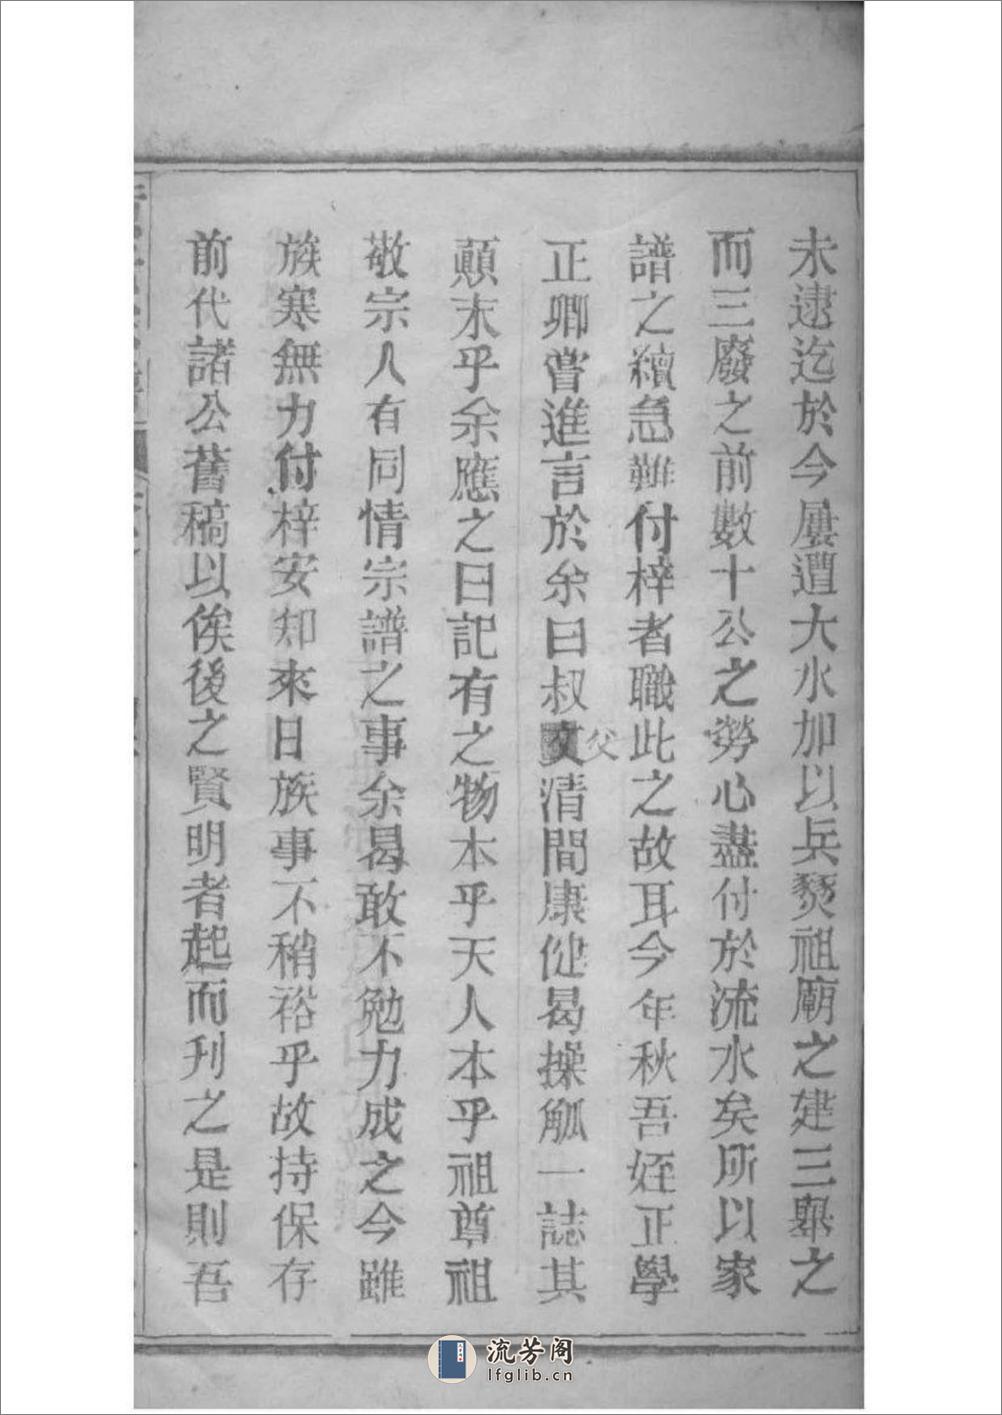 未逮迄於今屢遭大水加以兵燹祖廟之建三舉之
而三廢之前數十公之勞心盡付於流水矣所以家
譜之續急難付梓者職此之故耳今年秋吾姪正學
正卿嘗進言於余曰叔父清間康健曷操觚一誌其
顛末乎余應之曰記有之物本乎天人本乎祖尊祖
敬宗人有同情宗譜之事余曷敢不勉力成之今雖
族寒無力付梓安知來日族事不稍裕乎故持保存
前代諸公舊稿以俟後之賢明者起而刋之是則吾
流芳阁
lfglib.cn